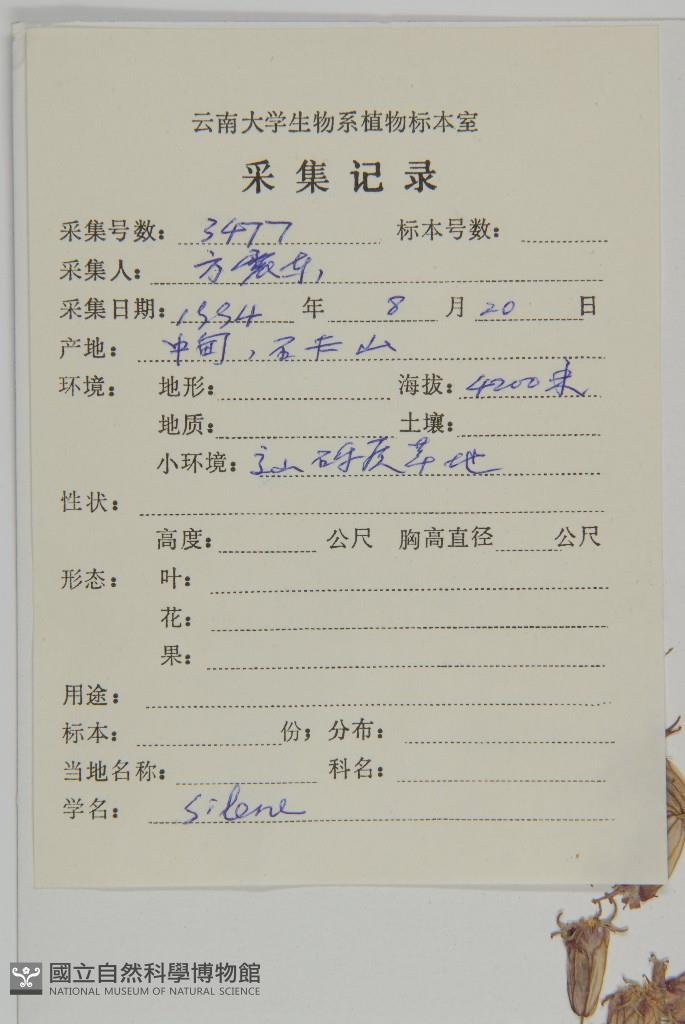 云南大学生物系植物标本室
采集记录
采集号数: 3477 标本号数:
采集人: 方震东,
采集日期: 1994 年 8 月 20 日
产地: 中甸,石卡山
环境: 地形: 海拔: 4200米
地质: 土壤:
小环境: 高山砾质草地
性状:
高度: 公尺 胸高直径 公尺
形态: 叶:
花:
果:
用途:
标本: 份; 分布:
当地名称: 科名:
学名: Silene
國立自然科學博物館
NATIONAL MUSEUM OF NATURAL SCIENCE